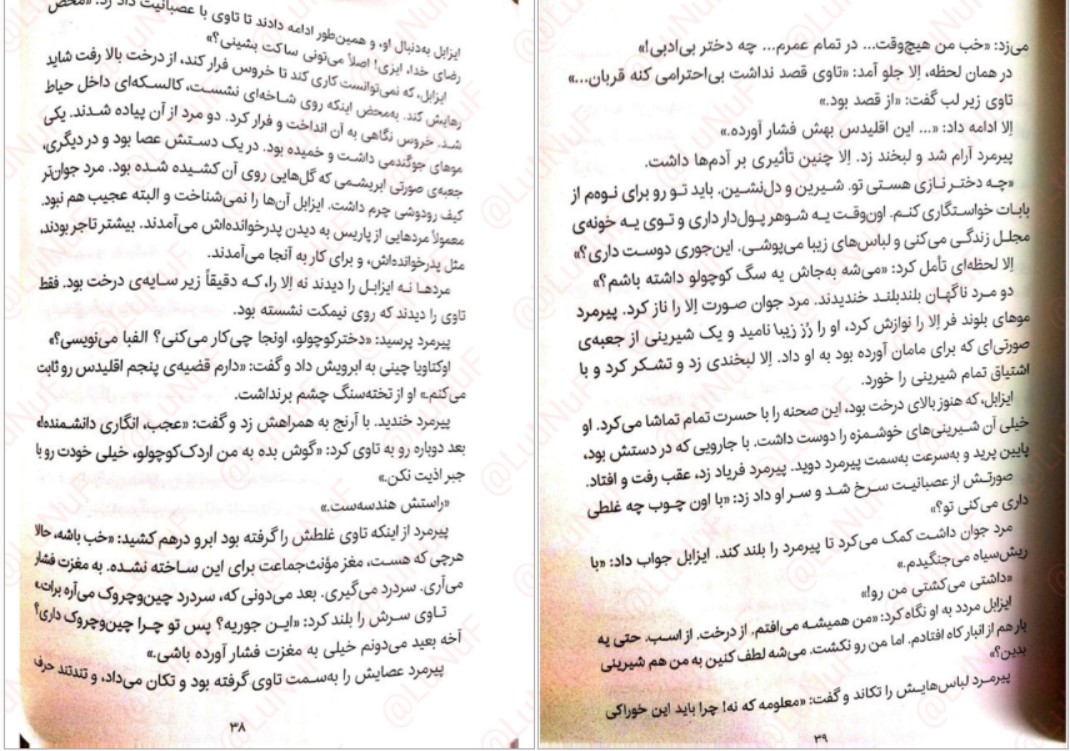 ایزابل به‌دنبال او، و همین‌طور ادامه دادند تا تاوی با عصبانیت داد زد: «محض
رضای خدا، ایزی! اصلاً می‌تونی ساکت بشینی؟»
ایزابل، که نمی‌توانست کاری کند تا خروس فرار کند، از درخت بالا رفت شاید
رهایش کند. به‌محض اینکه روی شاخه‌ای نشست، کالسکه‌ای داخل حیاط
شد. خروس نگاهی به آن انداخت و فرار کرد. دو مرد از آن پیاده شدند. یکی
موهای جوگندمی داشت و خمیده بود. در یک دستش عصا بود و در دیگری،
جعبه‌ی صورتی ابریشمی که گل‌هایی روی آن کشیده شده بود. مرد جوان‌تر
کیف رودوشی چرم داشت. ایزابل آن‌ها را نمی‌شناخت و البته عجیب هم نبود.
معمولاً مردهایی از پاریس به دیدن پدرخوانده‌اش می‌آمدند. بیشتر تاجر بودند،
مثل پدرخوانده‌اش، و برای کار به آنجا می‌آمدند.
مردها نه ایزابل را دیدند نه اِلا را، که دقیقاً زیر سایه‌ی درخت بود. فقط
تاوی را دیدند که روی نیمکت نشسته بود.
پیرمرد پرسید: «دخترکوچولو، اونجا چی‌کار می‌کنی؟ الفبا می‌نویسی؟»
اوکتاویا چینی به ابرویش داد و گفت: «دارم قضیه‌ی پنجم اقلیدس رو ثابت
می‌کنم.» او از تخته‌سنگ چشم برنداشت.
پیرمرد خندید. با آرنج به همراهش زد و گفت: «عجب، انگاری دانشمنده!»
بعد دوباره رو به تاوی کرد: «گوش بده به من اردک‌کوچولو، خیلی خودت رو با
جبر اذیت نکن.»
«راستش هندسه‌ست.»
پیرمرد از اینکه تاوی غلطش را گرفته بود ابرو درهم کشید: «خب باشه، حالا
هرچی که هست، مغز مؤنث‌جماعت برای این ساخته نشده. به مغزت فشار
می‌آری. سردرد می‌گیری. بعد می‌دونی که، سردرد چین‌وچروک می‌آره برات.»
تاوی سرش را بلند کرد: «این جوریه؟ پس تو چرا چین‌وچروک داری؟
آخه بعید می‌دونم خیلی به مغزت فشار آورده باشی.»
پیرمرد عصایش را به‌سمت تاوی گرفته بود و تکان می‌داد، و تندتند حرف
۳۸
می‌زد: «خب من هیچ‌وقت... در تمام عمرم... چه دختر بی‌ادبی!»
در همان لحظه، اِلا جلو آمد: «تاوی قصد نداشت بی‌احترامی کنه قربان...»
تاوی زیر لب گفت: «از قصد بود.»
اِلا ادامه داد: «... این اقلیدس بهش فشار آورده.»
پیرمرد آرام شد و لبخند زد. اِلا چنین تأثیری بر آدم‌ها داشت.
«چه دختر نازی هستی تو. شیرین و دل‌نشین. باید تو رو برای نوه‌م از
بابات خواستگاری کنم. اون‌وقت یه شوهر پول‌دار داری و توی یه خونه‌ی
مجلل زندگی می‌کنی و لباس‌های زیبا می‌پوشی. این‌جوری دوست داری؟»
اِلا لحظه‌ای تأمل کرد: «می‌شه به‌جاش یه سگ کوچولو داشته باشم؟»
دو مرد ناگهان بلندبلند خندیدند. مرد جوان صورت اِلا را ناز کرد. پیرمرد
موهای بلوند فر اِلا را نوازش کرد، او را رُز زیبا نامید و یک شیرینی از جعبه‌ی
صورتی‌ای که برای مامان آورده بود به او داد. اِلا لبخندی زد و تشکر کرد و با
اشتیاق تمام شیرینی را خورد.
ایزابل، که هنوز بالای درخت بود، این صحنه را با حسرت تمام تماشا می‌کرد. او
خیلی آن شیرینی‌های خوشمزه را دوست داشت. با جارویی که در دستش بود،
پایین پرید و به‌سرعت به‌سمت پیرمرد دوید. پیرمرد فریاد زد، عقب رفت و افتاد.
صورتش از عصبانیت سرخ شد و سر او داد زد: «با اون چوب چه غلطی
داری می‌کنی تو؟»
مرد جوان داشت کمک می‌کرد تا پیرمرد را بلند کند. ایزابل جواب داد: «با
ریش‌سیاه می‌جنگیدم.»
«داشتی می‌کشتی من رو!»
ایزابل مردد به او نگاه کرد: «من همیشه می‌افتم. از درخت. از اسب. حتی یه
بار هم از انبار کاه افتادم. اما من رو نکشت. می‌شه لطف کنین به من هم شیرینی
بدین؟»
پیرمرد لباس‌هایش را تکاند و گفت: «معلومه که نه! چرا باید این خوراکی
۳۹
@LUNUF